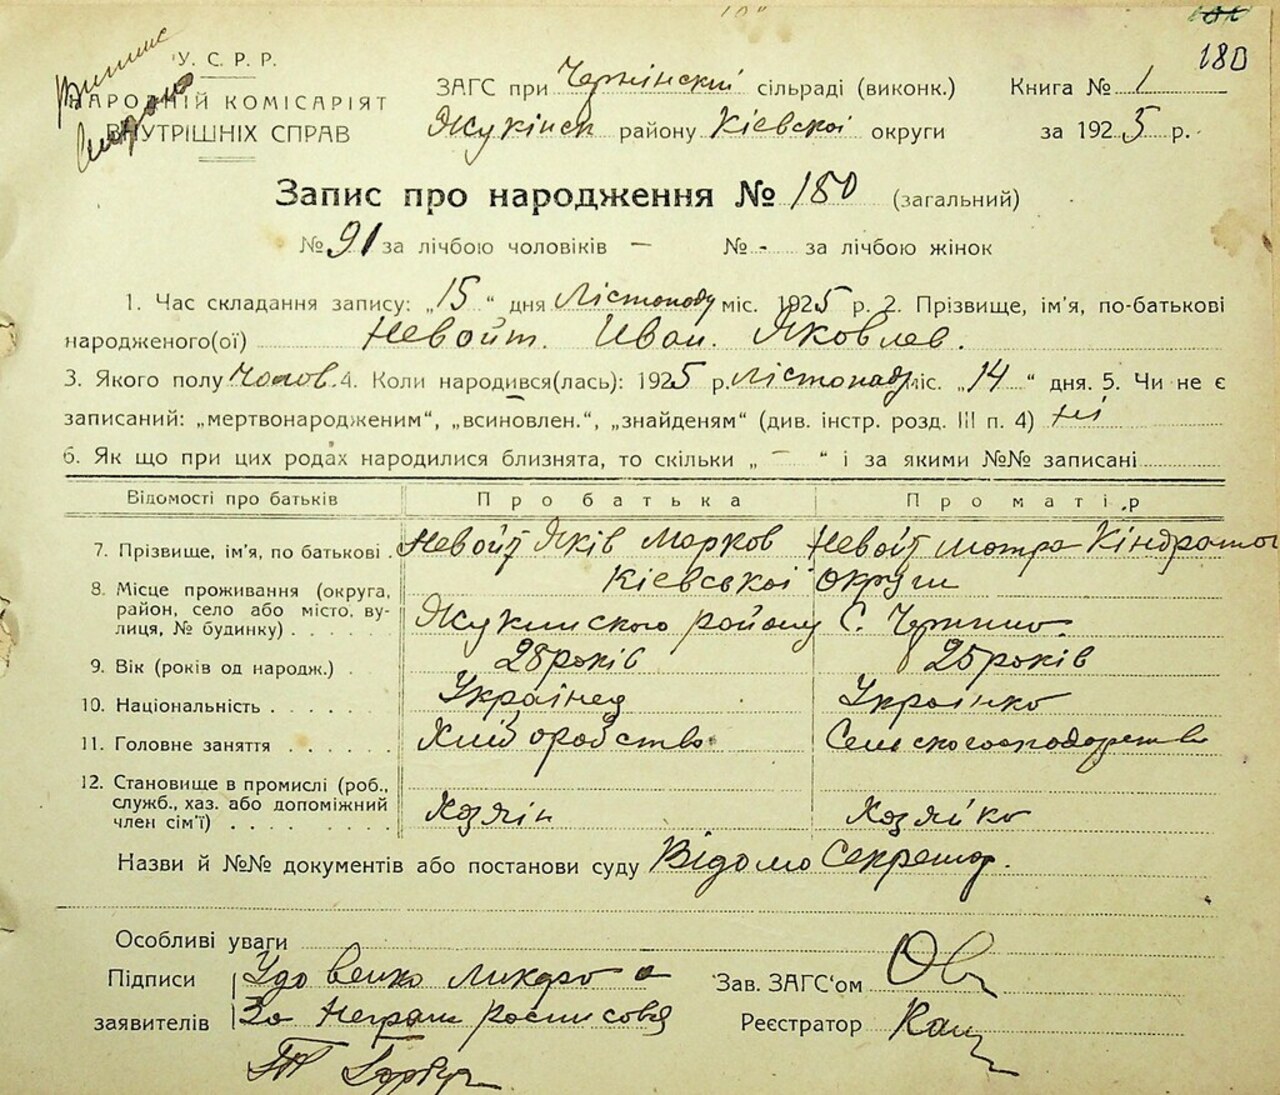 180
У. С. Р. Р.
НАРОДНІЙ КОМІСАРІЯТ
ВНУТРІШНІХ СПРАВ
ЗАГС при Чернінскій сільраді (виконк.) Книга № 1
Жукінск району Кіевскоі округи за 1925 р.
Запис про народження № 180 (загальний)
№ 91 за лічбою чоловіків — № - за лічбою жінок
1. Час складання запису: „15“ дня Лістопаду міс. 1925 р. 2. Прізвище, ім'я, по-батькові
народженого(ої) Невойт. Иван. Яковлев.
3. Якого полу Чолов. 4. Коли народився(лась): 1925 р. Лістопаду міс. „14“ дня. 5. Чи не є
записаний: „мертвонародженим“, „всиновлен.“, „знайденям“ (див. інстр. розд. III п. 4) ні
6. Як що при цих родах народилися близнята, то скільки „ — “ і за якими №№ записані
Відомості про батьків Про батька Про матір
7. Прізвище, ім'я, по батькові Невойт Яків Марков Невойт Мотра Кіндратов
8. Місце проживання (округа, Кіевськоі округи
район, село або місто, ву-
лиця, № будинку) Жукинского району С. Чернино.
9. Вік (років од народж.) 28 років 25 років
10. Національність Украінец Украінка
11. Головне заняття Хліборобство Селскогосподарство
12. Становище в промислі (роб.,
служб., хаз. або допоміжний
член сім'ї) Хозяін Хозяйка
Назви й №№ документів або постанови суду Відомо Секретар.
Особливі уваги
Підписи Удовенко
заявителів За неграм росписовся
Зав. ЗАГС'ом
Реєстратор